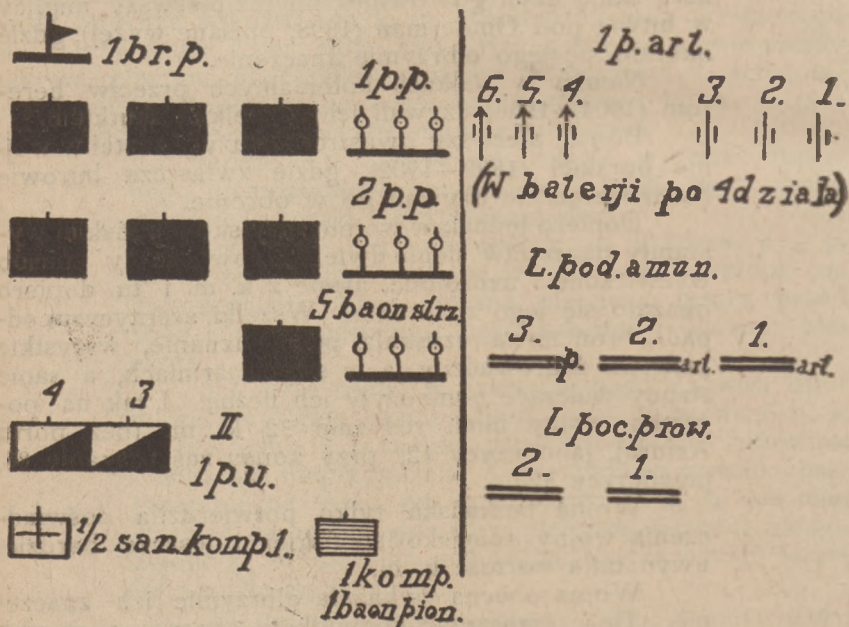 1 br. p.
1 p. p.
2 p. p
5 baon strz.
4 3
II
1 p. u.
1/2 san. komp. 1.
1 komp.
1 baon pion.
1 p. art.
6. 5. 4. 3. 2. 1.
(W baterji po 4 działa)
L. pod. amun.
3. 2. 1.
p. art. art.
L poc. prow.
2. 1.